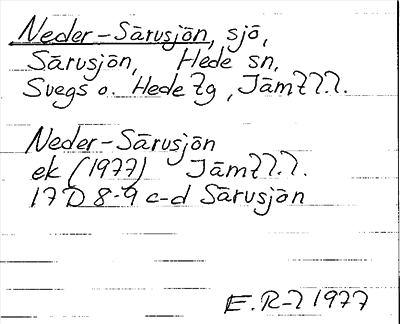 Neder-Särusjön, sjö,
Särusjön, Hede sn,
Svegs o. Hede tg, Jämtl.
Neder-Särusjön
ek (1977) Jämtl.
17D 8-9 c-d Särusjön
E. R-l 1977